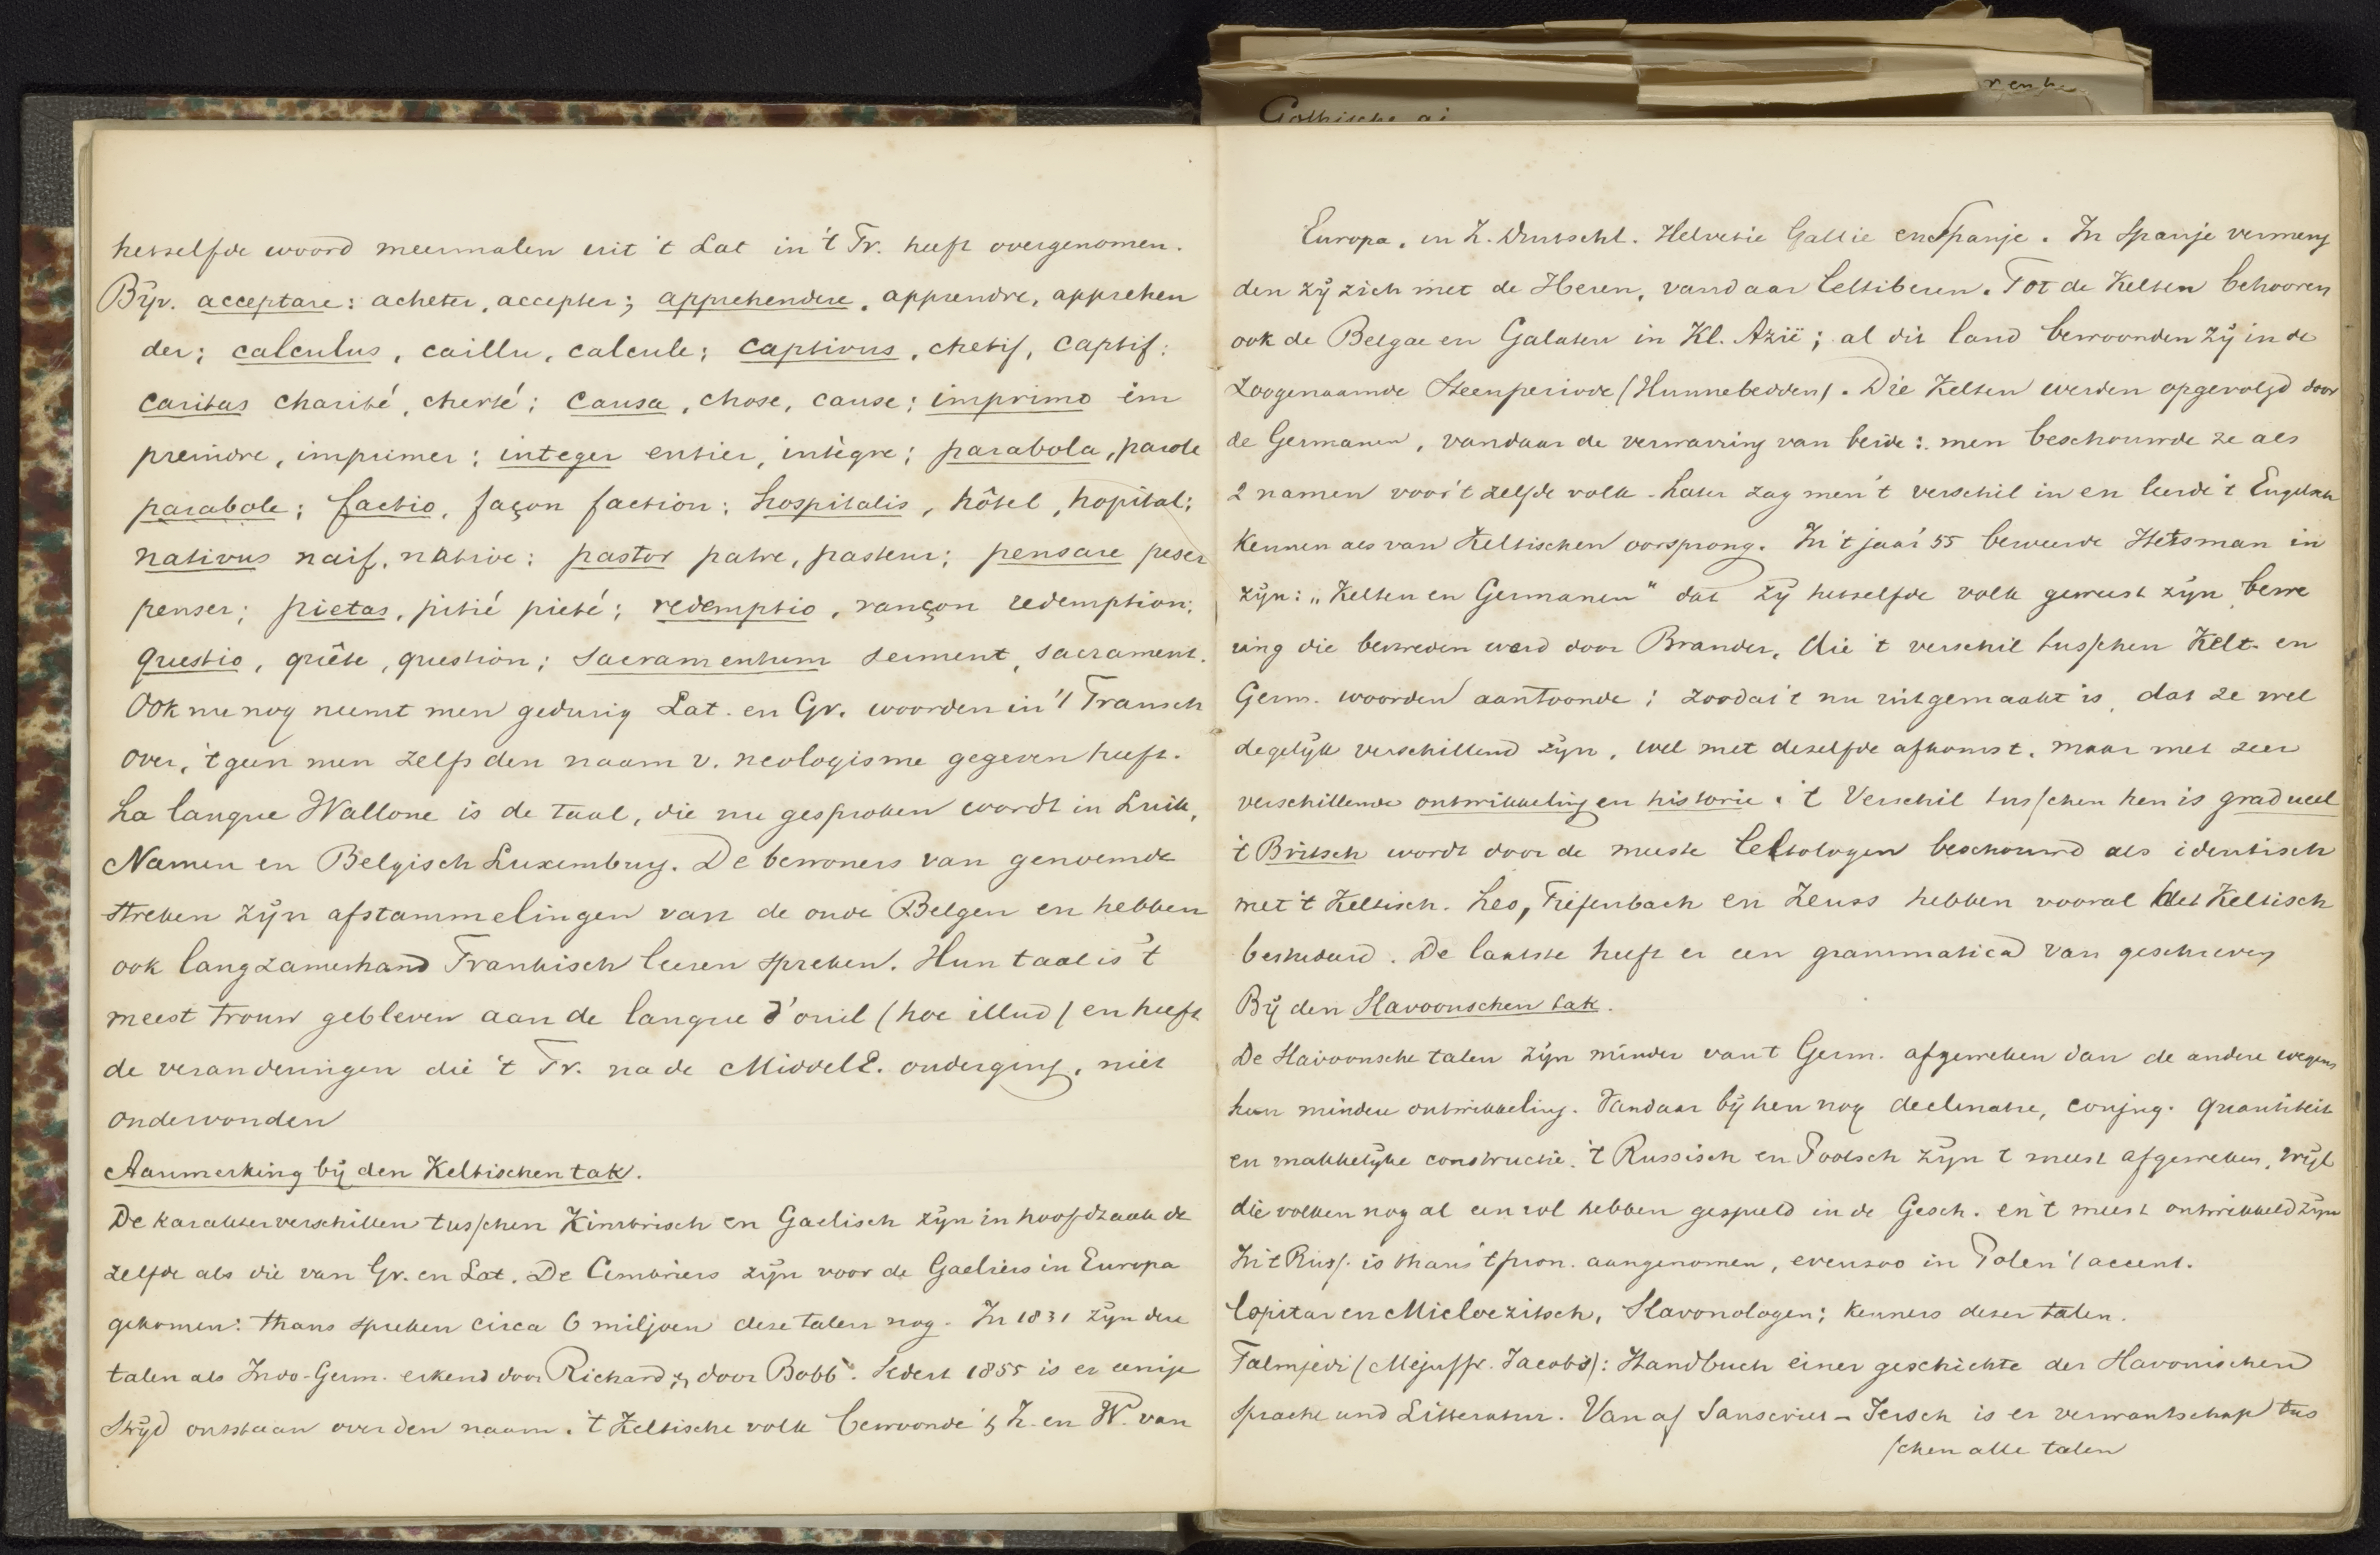 Gothische ai
hetzelfde woord meermalen uit 't Lat in 't Fr. heeft overgenomen.
Bijv. acceptare: acheter, accepter; apprehendere, apprendre, apprehen
der; calculus, caillu, calcule; captivus, chetif, captif;
caritas charité, cherté; causa, chose, cause; imprimo em
preindre, imprimer; integer entier, intègre; parabola, parole
parabole; factio, façon faction; hospitalis, hôtel, hopital;
nativus naif, native; pastor patre, pasteur; pensare peser
penser; pietas, pitié pieté; redemptio, rançon redemption;
questio, quête, question; sacramentum serment, sacrament.
Ook nu nog neemt men gedurig Lat. en Gr. woorden in 't Fransch
over, 't geen men zelfs den naam v. neologisme gegeven heeft.
La langue Wallone is de taal, die nu gesproken wordt in Luik,
Namen en Belgisch Luxemburg. De bewoners van genoemde
streken zijn afstammelingen van de oude Belgen en hebben
ook langzamerhand Frankisch leeren spreken. Hun taal is 't
meest trouw gebleven aan de langue d'ouil (hoc illud) en heeft
de veranderingen die 't Fr. na de MiddelE. onderging, niet
ondervonden
Aanmerking bij den Keltischen tak.
De karakterverschillen tusschen Kimbrisch en Gaelisch zijn in hoofdzaak de
zelfde als die van Gr. en Lat. De Cimbriers zijn voor de Gaeliers in Europa
gekomen: thans spreken circa 6 miljoen deze talen nog. In 1831 zijn deze
talen als Indo-Germ. erkend door Richard & door Bobb. Sedert 1855 is er eenige
strijd ontstaan over den naam. 't Keltische volk bewoonde 't Z. en W. van
Europa. in Z. Duitschl. Helvetie Gallie en Spanje. In Spanje vermeng
den zij zich met de Iberen, vandaar Celtiberen. Tot de Kelten behooren
ook de Belgae en Galaten in Kl. Azië; al dit land bewoonden zij in de
zoogenaamde Steenperiode (Hunnebedden). Die Kelten werden opgevolgd door
de Germanen, vandaar de verwarring van beide: men beschouwde ze als
2 namen voor 't zelfde volk. Later zag men 't verschil in en leerde 't Engelsch
kennen als van Keltischen oorsprong. In 't jaar 55 beweerde Holtsman in
zijn: „Kelten en Germanen" dat zij hetzelfde volk geweest zijn, bewe
ring die bestreden werd door Brandes, die 't verschil tusschen Kelt. en
Germ. woorden aantoonde; zoodat 't nu uitgemaakt is, dat ze wel
degelijk verschillend zijn, wel met dezelfde afkomst, maar met zeer
verschillende ontwikkeling en historie. 't Verschil tusschen hen is gradueel
't Britsch wordt door de meeste Celtologen beschouwd als identisch
met 't Keltisch. Leo, Tiefenbach en Zeuss hebben vooral het Keltisch
bestudeerd. De laatste heeft er een grammatica van geschreven
Bij den Slavoonschen tak.
De Slavoonsche talen zijn minder van 't Germ. afgeweken dan de andere wegens
hun mindere ontwikkeling. Vandaar bij hen nog declinatie, conjug. quantiteit
en makkelijke constructie. 't Russisch en Poolsch zijn 't meest afgeweken, wijl
die volken nog al een rol hebben gespeeld in de Gesch. en 't meest ontwikkeld zijn
In 't Russ. is thans 't pron. aangenomen, evenzoo in Polen 't accent.
Copitar en Micloezitsch, Slavonologen; kenners dezer talen.
Talmjedi (Mejuffr. Jacobs): Handbuch einer geschichte der Slavonischen
Sprache und Litteratur. Van af Sanscriet - Iersch is er verwantschap tus
schen alle talen